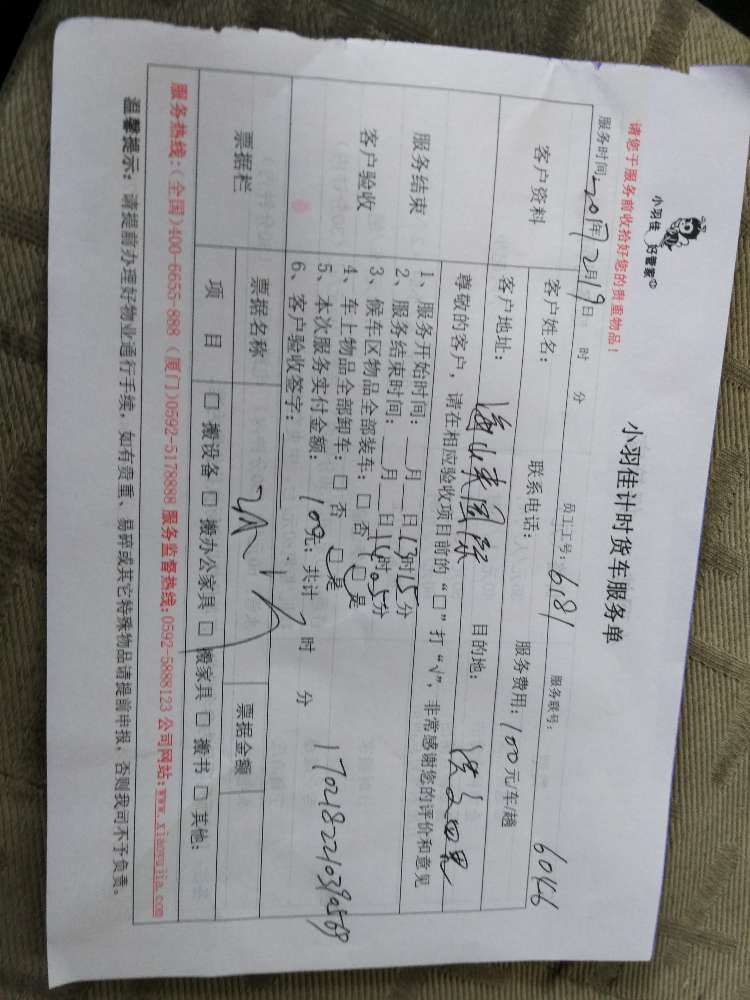 小羽佳 好管家
小羽佳计时货车服务单
请您于服务前收拾好您的贵重物品!
员工工号: 6181 服务联号: 6046
服务时间: 2017年2月19日 时 分
客户资料
客户姓名: 联系电话: 服务费用: 100元/车/趟
客户地址: 目的地:
服务结束
客户验收
尊敬的客户,请在相应验收项目前的“□”打“√”,非常感谢您的评价和意见
1、服务开始时间: 月 日13时15分
2、服务结束时间: 月 日14时05分
3、候车区物品全部装车: □ 否 □ 是
4、车上物品全部卸车: □ 否 □ 是
5、本次服务实付金额: 100元; 共计 时 分
6、客户验收签字:
票据栏
票据名称 票据金额
项 目 □ 搬设备 □ 搬办公家具 □ 搬家具 □ 搬书 □ 其他:
服务热线:(全国)400-6655-888 (厦门)0592-5178888 服务监督热线:0592-5888123 公司网站:www.xiaoyujia.com
温馨提示: 请提前办理好物业通行手续, 如有贵重、易碎或其它特殊物品请提前申报, 否则我司不予负责。